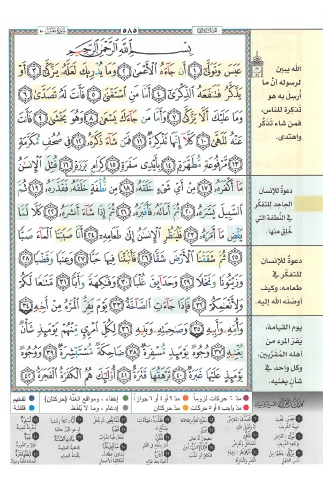 ٥٨٥
بِسْمِ ٱللَّهِ ٱلرَّحْمَٰنِ ٱلرَّحِيمِ
عَبَسَ وَتَوَلَّىٰٓ ١ أَن جَآءَهُ ٱلْأَعْمَىٰ ٢ وَمَا يُدْرِيكَ لَعَلَّهُۥ يَزَّكَّىٰٓ ٣ أَوْ
يَذَّكَّرُ فَتَنفَعَهُ ٱلذِّكْرَىٰٓ ٤ أَمَّا مَنِ ٱسْتَغْنَىٰ ٥ فَأَنتَ لَهُۥ تَصَدَّىٰ ٦
وَمَا عَلَيْكَ أَلَّا يَزَّكَّىٰ ٧ وَأَمَّا مَن جَآءَكَ يَسْعَىٰ ٨ وَهُوَ يَخْشَىٰ ٩ فَأَنتَ
عَنْهُ تَلَهَّىٰ ١٠ كَلَّآ إِنَّهَا تَذْكِرَةٌ ١١ فَمَن شَآءَ ذَكَرَهُۥ ١٢ فِى صُحُفٍ مُّكَرَّمَةٍ
١٣ مَّرْفُوعَةٍ مُّطَهَّرَةٍۭ ١٤ بِأَيْدِى سَفَرَةٍ ١٥ كِرَامٍۭ بَرَرَةٍ ١٦ قُتِلَ ٱلْإِنسَٰنُ
مَآ أَكْفَرَهُۥ ١٧ مِنْ أَىِّ شَىْءٍ خَلَقَهُۥ ١٨ مِن نُّطْفَةٍ خَلَقَهُۥ فَقَدَّرَهُۥ ١٩ ثُمَّ
ٱلسَّبِيلَ يَسَّرَهُۥ ٢٠ ثُمَّ أَمَاتَهُۥ فَأَقْبَرَهُۥ ٢١ ثُمَّ إِذَا شَآءَ أَنشَرَهُۥ ٢٢ كَلَّا لَمَّا
يَقْضِ مَآ أَمَرَهُۥ ٢٣ فَلْيَنظُرِ ٱلْإِنسَٰنُ إِلَىٰ طَعَامِهِۦٓ ٢٤ أَنَّا صَبَبْنَا ٱلْمَآءَ صَبًّا
٢٥ ثُمَّ شَقَقْنَا ٱلْأَرْضَ شَقًّا ٢٦ فَأَنۢبَتْنَا فِيهَا حَبًّا ٢٧ وَعِنَبًا وَقَضْبًا ٢٨
وَزَيْتُونًا وَنَخْلًا ٢٩ وَحَدَآئِقَ غُلْبًا ٣٠ وَفَٰكِهَةً وَأَبًّا ٣١ مَّتَٰعًا لَّكُمْ
وَلِأَنْعَٰمِكُمْ ٣٢ فَإِذَا جَآءَتِ ٱلصَّآخَّةُ ٣٣ يَوْمَ يَفِرُّ ٱلْمَرْءُ مِنْ أَخِيهِ ٣٤
وَأُمِّهِۦ وَأَبِيهِ ٣٥ وَصَٰحِبَتِهِۦ وَبَنِيهِ ٣٦ لِكُلِّ ٱمْرِئٍ مِّنْهُمْ يَوْمَئِذٍ شَأْنٌ
يُغْنِيهِ ٣٧ وُجُوهٌ يَوْمَئِذٍ مُّسْفِرَةٌ ٣٨ ضَاحِكَةٌ مُّسْتَبْشِرَةٌ ٣٩ وَوُجُوهٌ
يَوْمَئِذٍ عَلَيْهَا غَبَرَةٌ ٤٠ تَرْهَقُهَا قَتَرَةٌ ٤١ أُو۟لَٰٓئِكَ هُمُ ٱلْكَفَرَةُ ٱلْفَجَرَةُ ٤٢
الله يبين
لرسوله أنّ ما
أُرسِل به هو
تذكرة للناس،
فمن شاء تذكّر
واهتدى.
دعوةٌ للإنسان
الجاحد للتفكّر
في النُطفة التي
خُلِق منها.
دعوةٌ للإنسان
للتفكّر في
طعامه، وكيف
أوصَله الله إليه.
يوم القيامة،
يفرّ المرء من
أهله المُقرّبين،
وكلّ واحد في
شأنٍ يغنيه.
مدّ ٦ حركات لزوماً مدّ ٢ أو ٤ أو ٦ جوازاً إخفاء، ومواقع الغُنَّة (حركتان) تفخيم
مدّ واجب ٤ أو ٥ حركات مدّ حركتان إدغام، وما لا يُلفَظ قلقلة